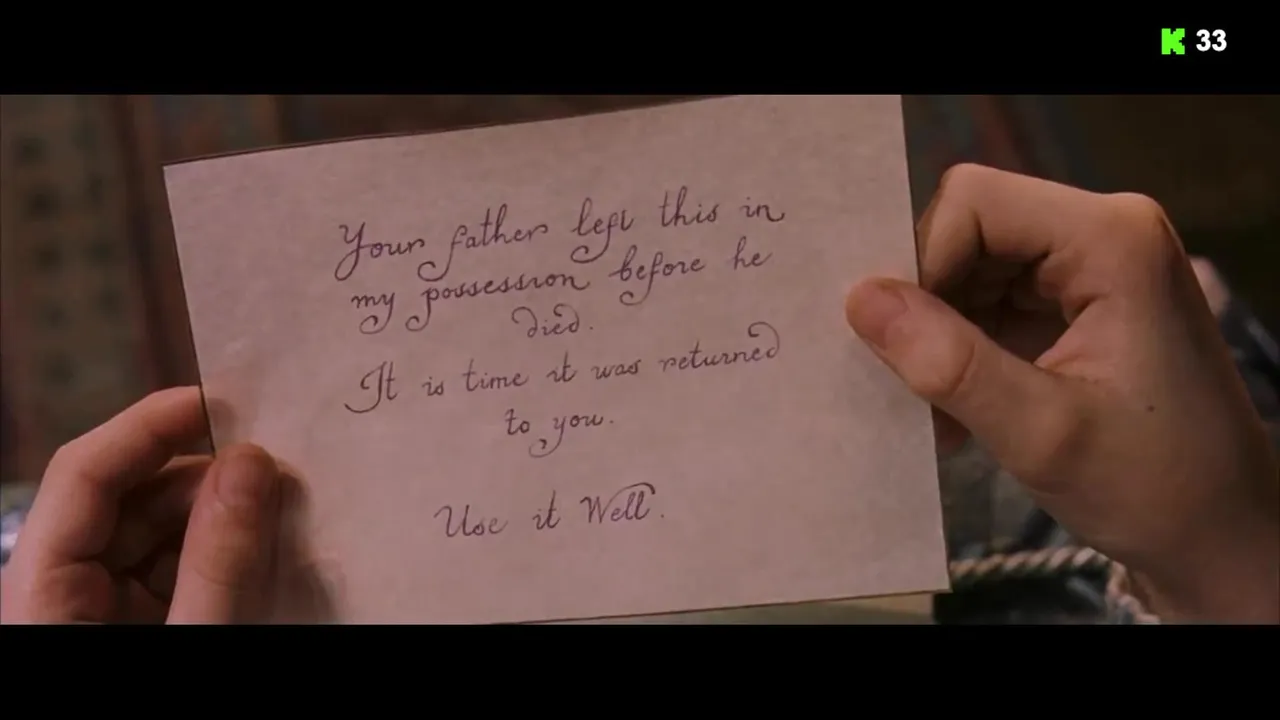 K 33
Your father left this in
my possession before he
died.
It is time it was returned
to you.
Use it Well.